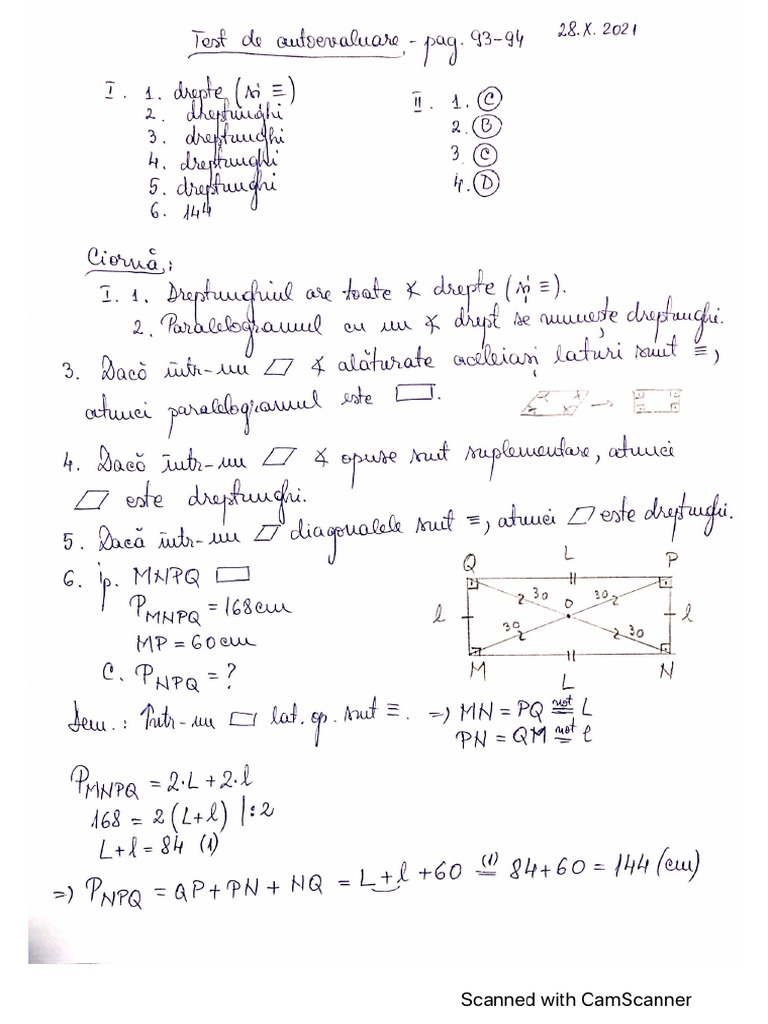 Test de autoevaluare - pag. 93-94 28.X.2021
I. 1. drepte (și ≡)
2. dreptunghi
3. dreptunghi
4. dreptunghi
5. dreptunghi
6. 144
II. 1. C
2. B
3. C
4. D
Ciornă:
I. 1. Dreptunghiul are toate ∢ drepte (și ≡).
2. Paralelogramul cu un ∢ drept se numește dreptunghi.
3. Dacă într-un ▱ ∢ alăturate aceleiași laturi sunt ≡,
atunci paralelogramul este ▭.
4. Dacă într-un ▱ ∢ opuse sunt suplementare, atunci
▱ este dreptunghi.
5. Dacă într-un ▱ diagonalele sunt ≡, atunci ▱ este dreptunghi.
6. ip. MNPQ ▭
P_MNPQ = 168cm
MP = 60cm
C. P_NPQ = ?
Q L P
30 30
l O l
30 30
M L N
Dem.: Într-un ▭ lat. op. sunt ≡. => MN = PQ not= L
PN = QM not= l
P_MNPQ = 2·L + 2·l
168 = 2(L+l) |:2
L+l = 84 (1)
=> P_NPQ = QP + PN + NQ = L + l + 60 (1)= 84 + 60 = 144 (cm)
Scanned with CamScanner